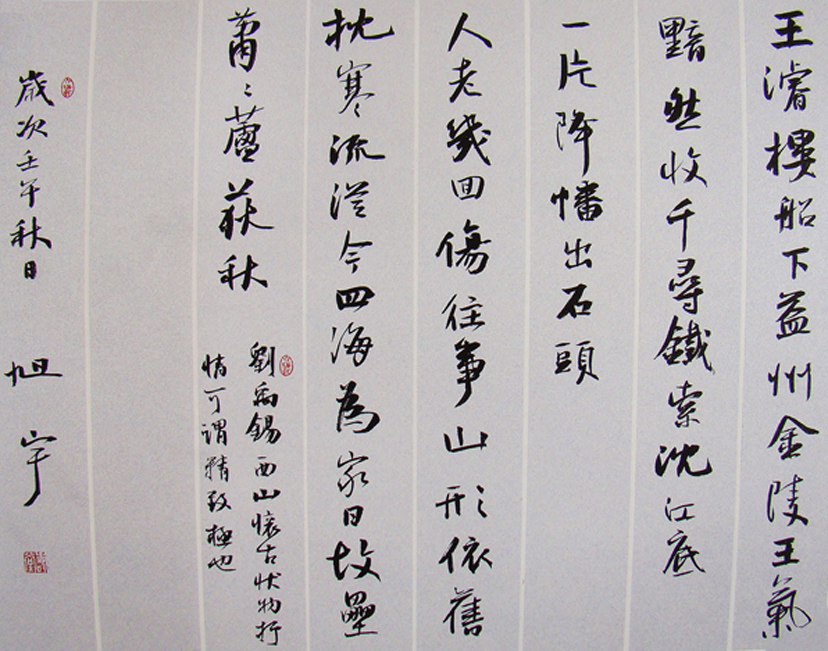 王濬樓船下益州金陵王氣
黯然收千尋鐵索沈江底
一片降幡出石頭
人老幾回傷往事山形依舊
枕寒流從今四海為家日故壘
蕭〻蘆荻秋
劉禹錫西山懷古狀物抒
情可謂精致極也
歲次壬午秋日 旭宇